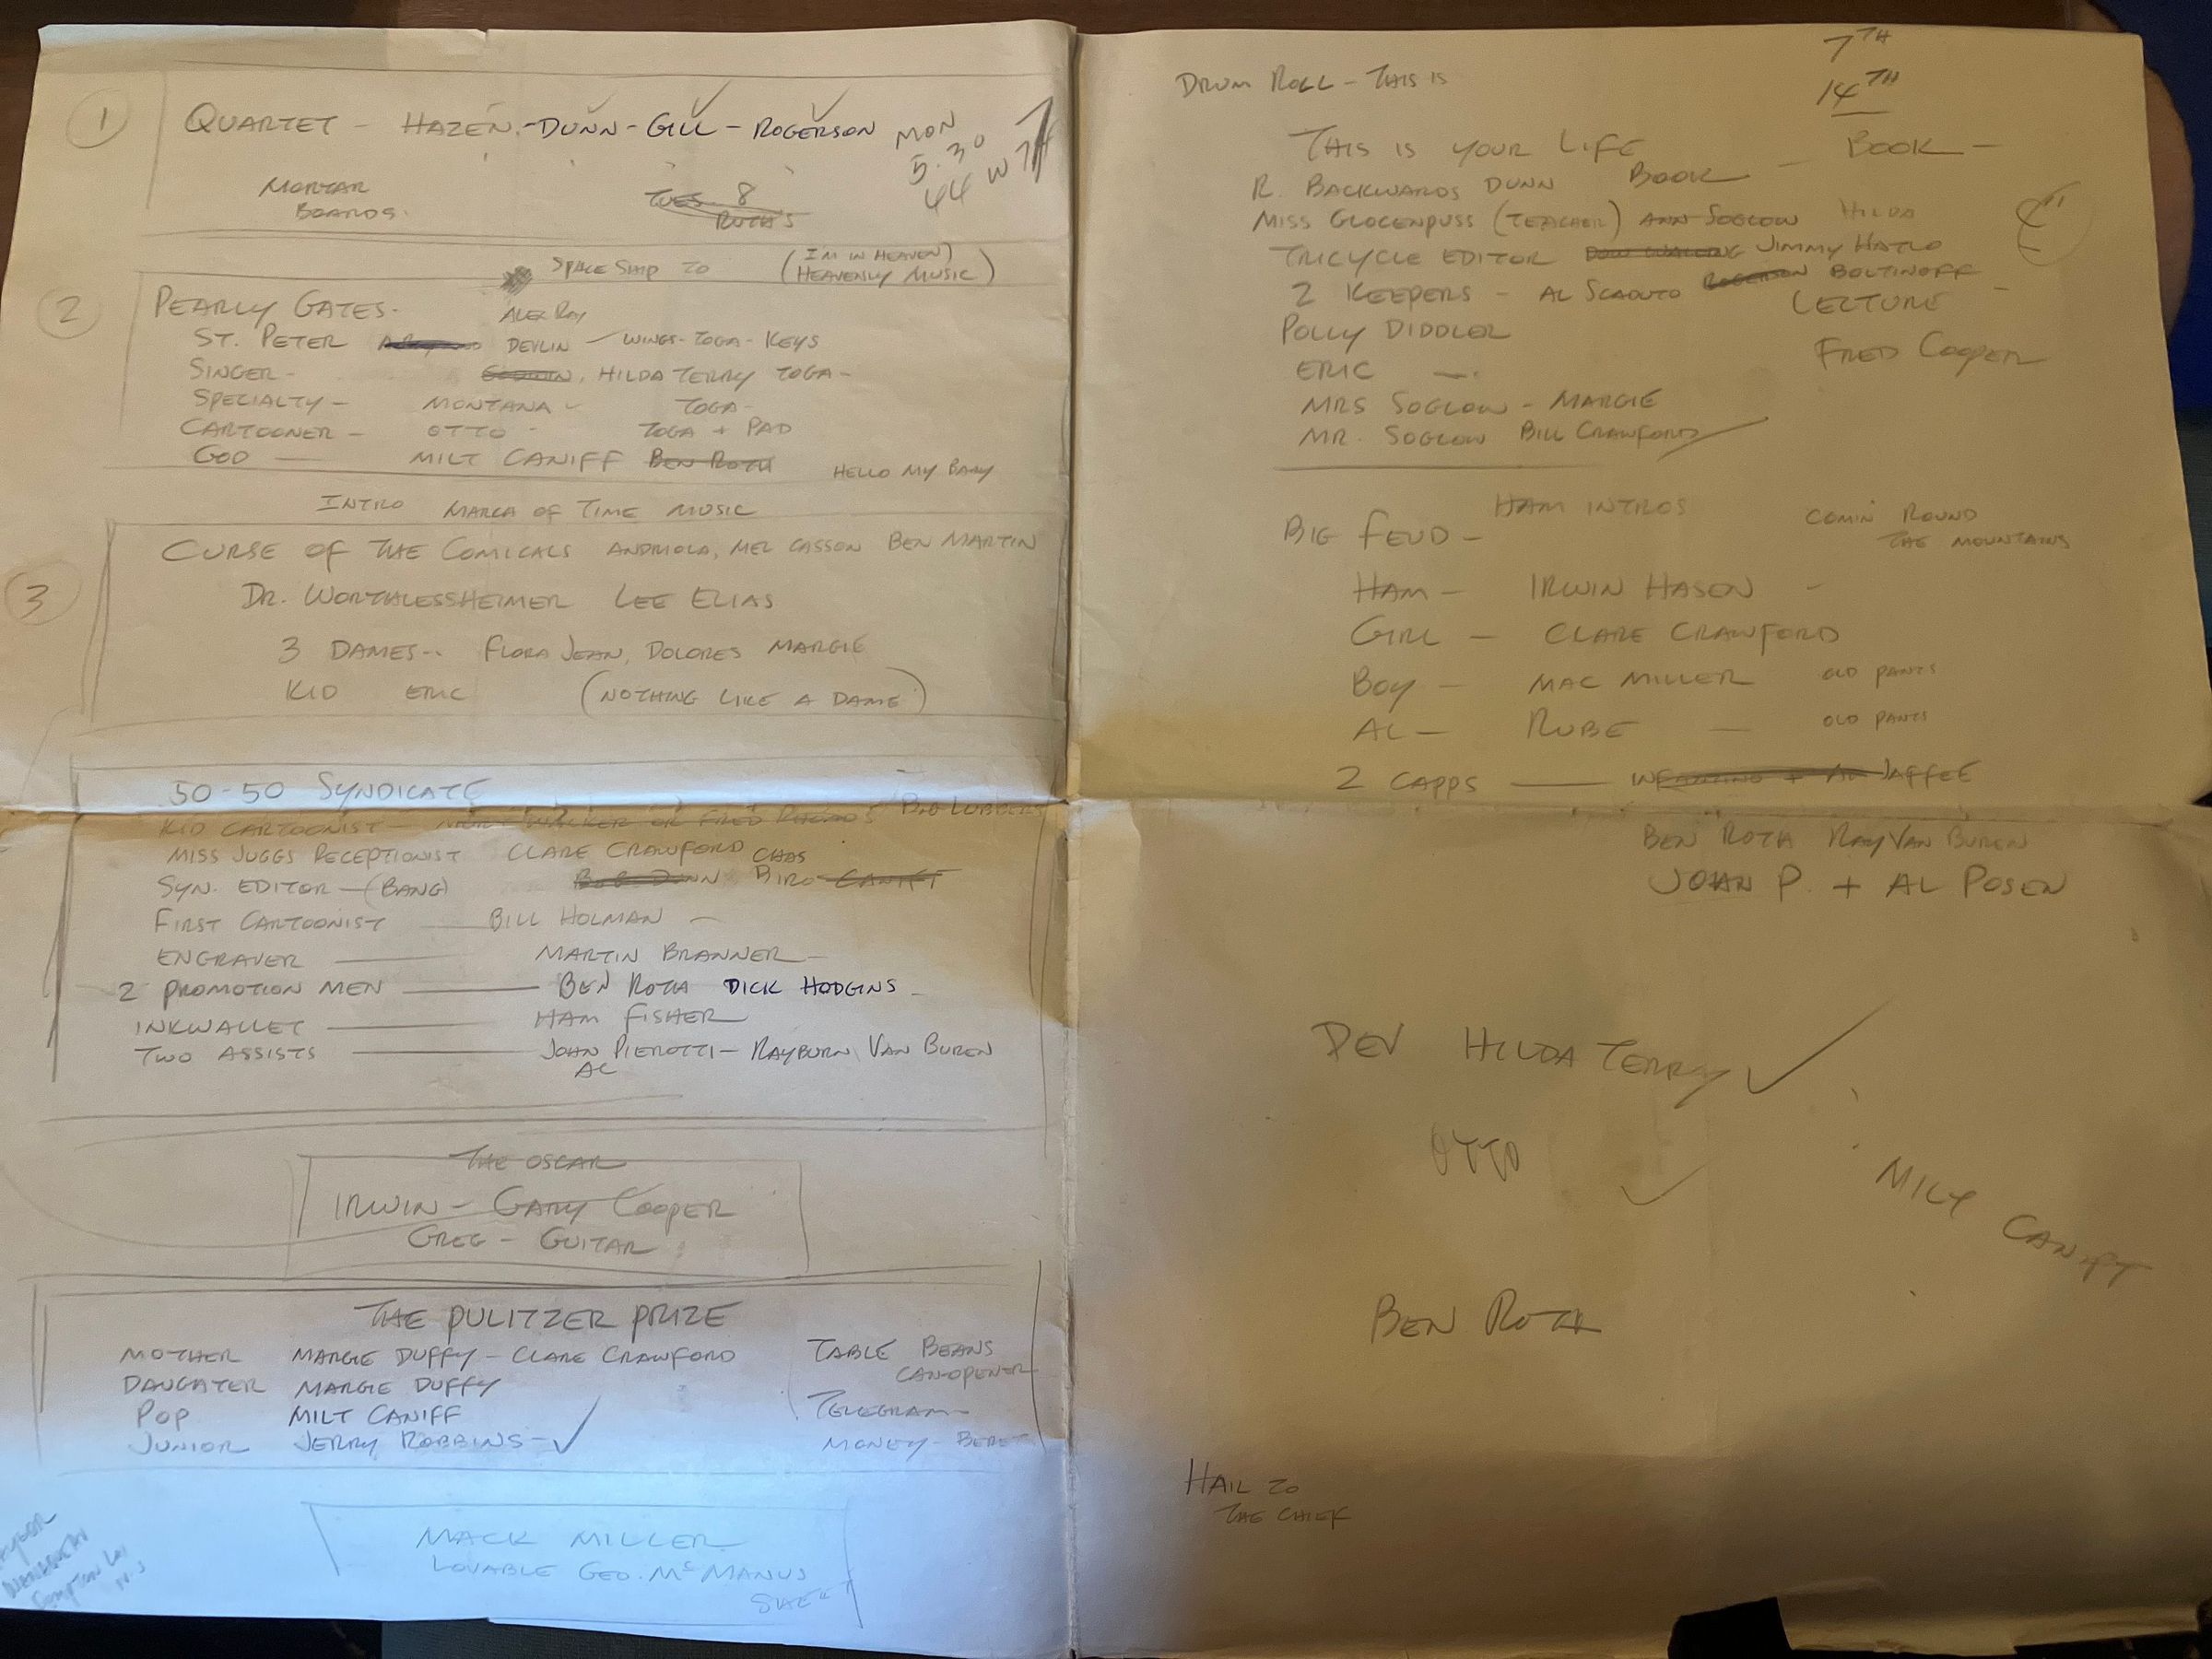 1
QUARTET - HAZEN - DUNN - GILL - ROGERSON
MON
5.30
44 W
MORTAR
BOARDS.
TUES. 8
RUTH'S
SPACE SHIP TO (I'M IN HEAVEN)
(HEAVENLY MUSIC)
2
PEARLY GATES - ALEX RAY
ST. PETER DEVLIN - WINGS - TOGA - KEYS
SINGER - HILDA TERRY TOGA -
SPECIALTY - MONTANA - TOGA -
CARTOONER - OTTO - TOGA + PAD
GOD - MILT CANIFF BEN ROTH
HELLO MY BABY
INTRO MARCH OF TIME MUSIC
3
CURSE OF THE COMICALS ANDRIOLA, MEL CASSON BEN MARTIN
DR. WORTHLESSHEIMER LEE ELIAS
3 DAMES - FLORA JEAN, DOLORES MARGIE
KID ERIC (NOTHING LIKE A DAME)
50-50 SYNDICATE
KID CARTOONIST - MORT WALKER OR FRED RHOADS BOB LUBBERS
MISS JUGGS RECEPTIONIST CLARE CRAWFORD
SYN. EDITOR - (BANG) BOB DUNN CHAS BIRO CANIFF
FIRST CARTOONIST - BILL HOLMAN -
ENGRAVER - MARTIN BRANNER -
2 PROMOTION MEN - BEN ROTH DICK HODGINS -
INKWALLET - HAM FISHER
TWO ASSISTS - JOHN PIEROTTI - RAYBURN VAN BUREN
AL
THE OSCAR
IRWIN - GARY COOPER
GREG - GUITAR
THE PULITZER PRIZE
MOTHER MARGIE DUFFY - CLARE CRAWFORD
DAUGHTER MARGIE DUFFY
POP MILT CANIFF
JUNIOR JERRY ROBBINS -
TABLE BEANS
CAN OPENER
TELEGRAM -
MONEY - BERET
MACK MILLER
LOVABLE GEO. McMANUS
N.J
7TH
14TH
DRUM ROLL - THIS IS
THIS IS YOUR LIFE - BOOK -
R. BACKWARDS DUNN BOOK
MISS GLOCENPUSS (TEACHER) ANN SOGLOW HILDA
TRICYCLE EDITOR JIMMY HATLO
2 KEEPERS - AL SCADUTO ROGERSON BOLTINOFF
POLLY DIDDLER LECTURE -
ERIC - FRED COOPER
MRS SOGLOW - MARGIE
MR. SOGLOW BILL CRAWFORD
HAM INTROS
BIG FEUD - COMIN' ROUND
THE MOUNTAINS
HAM - IRWIN HASEN -
GIRL - CLARE CRAWFORD
BOY - MAC MILLER OLD PANTS
AL - RUBE - OLD PANTS
2 CAPPS - + AL JAFFEE
BEN ROTH RAY VAN BUREN
JOHN P. + AL POSEN
DEV HILDA TERRY
OTTO
MILT CANIFF
BEN ROTH
HAIL TO
THE CHIEF